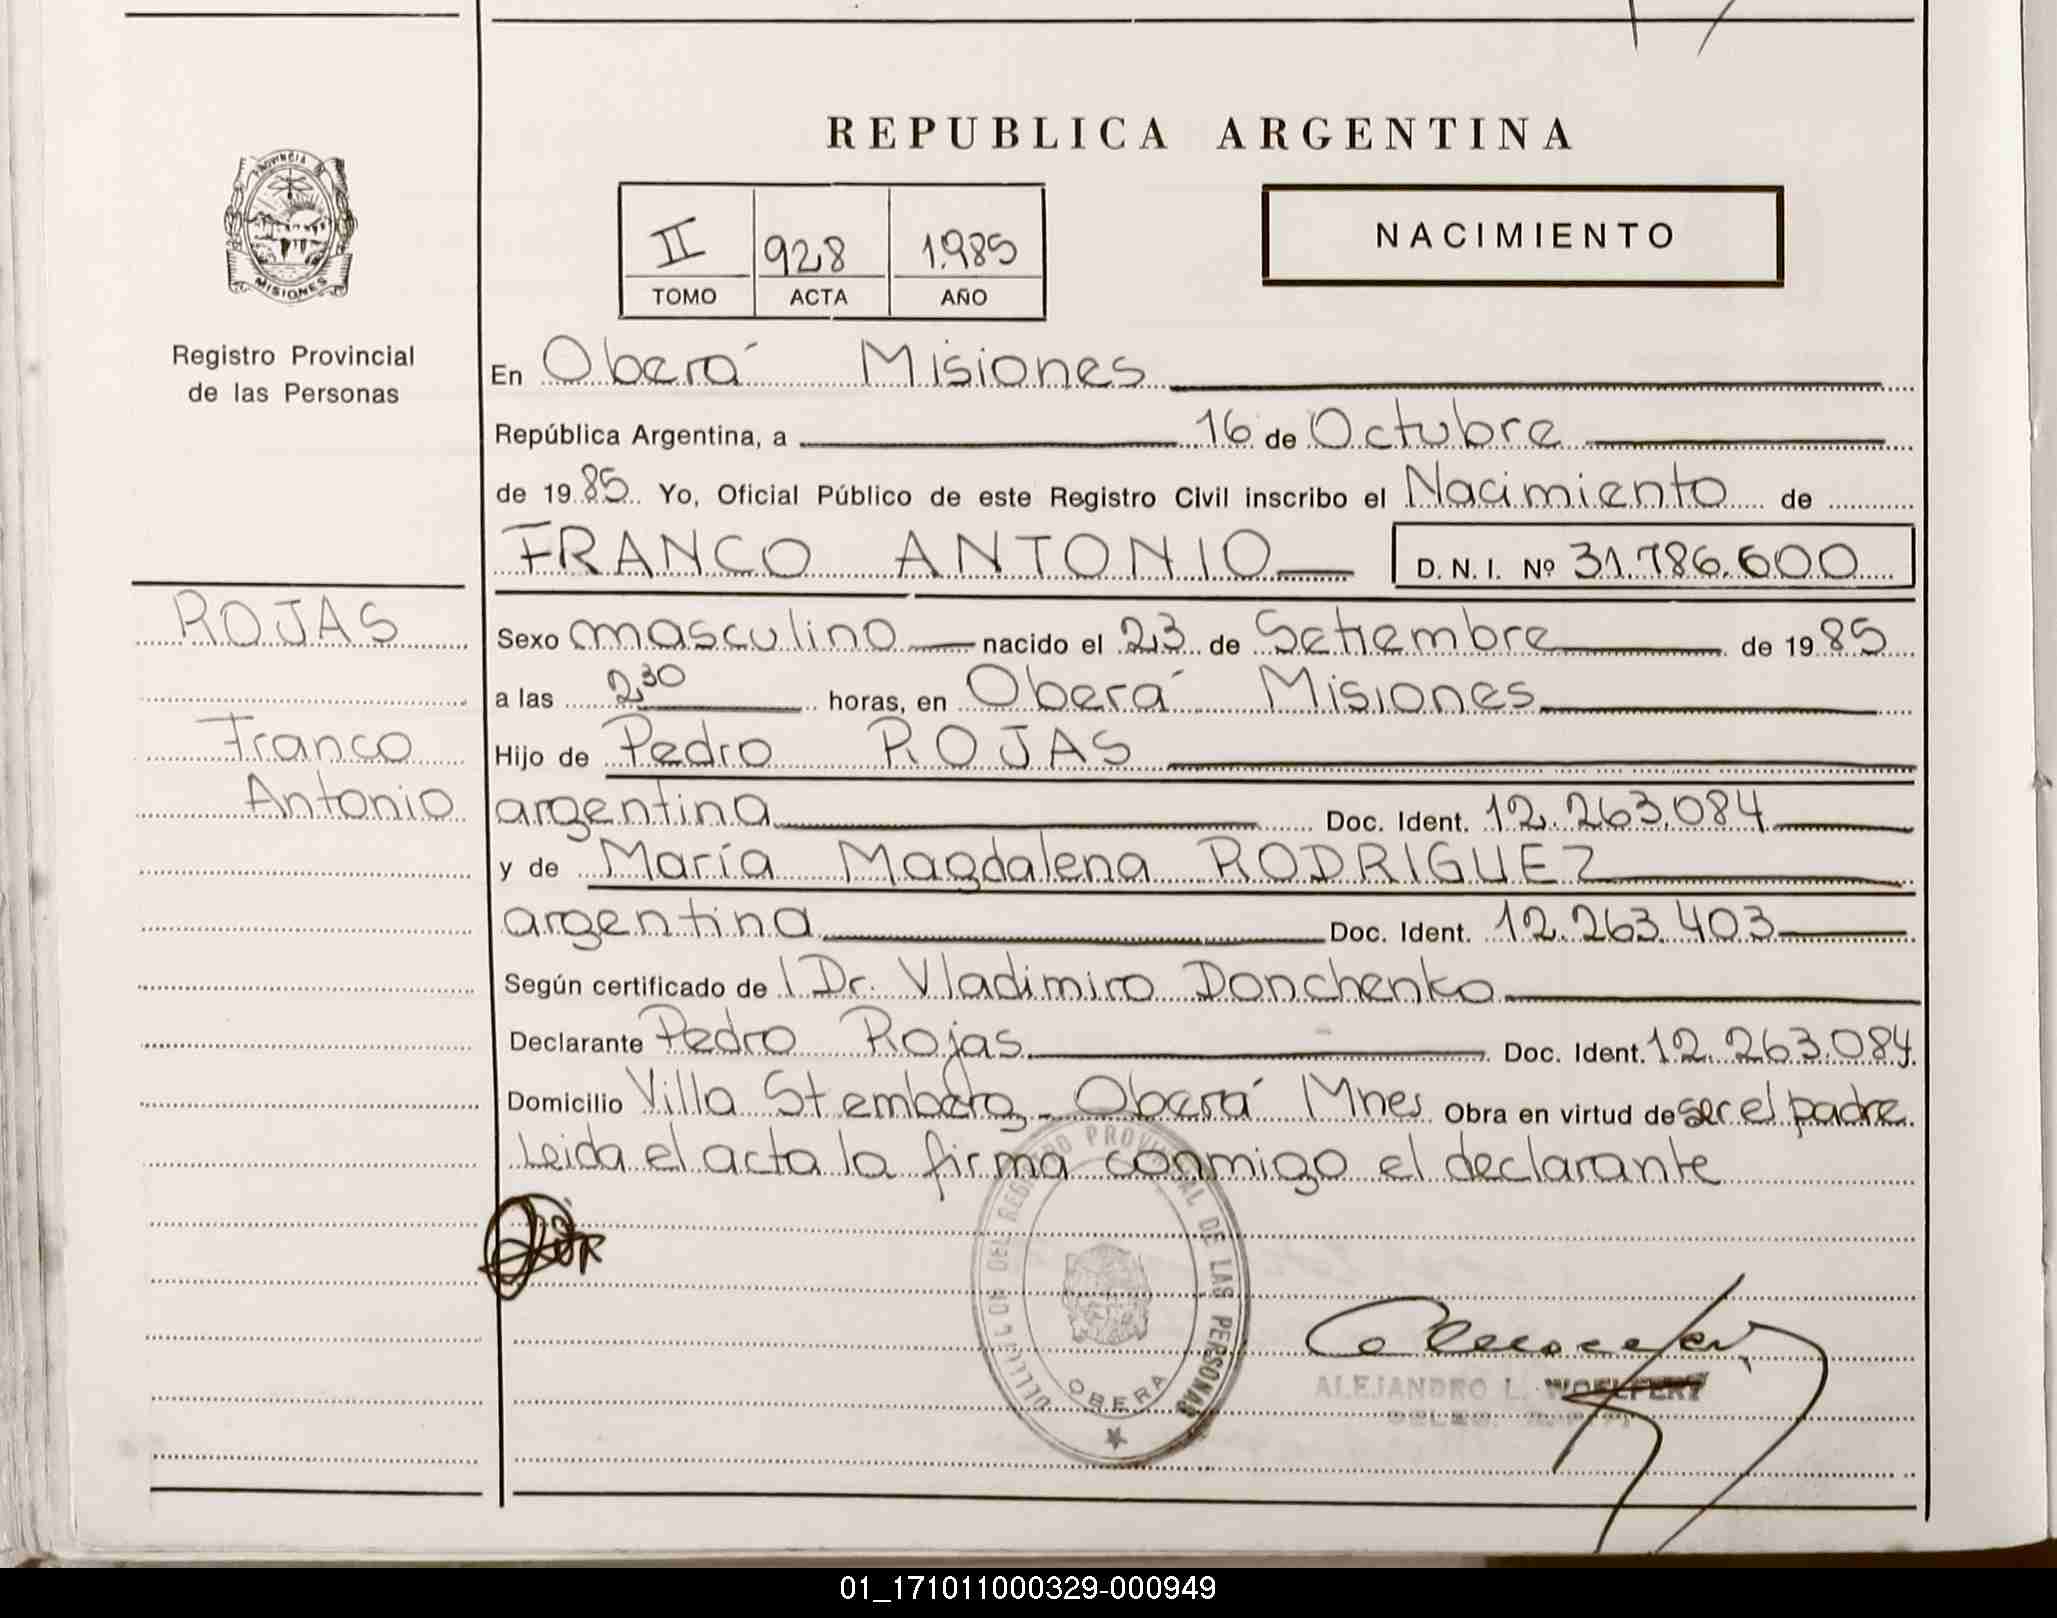 REPUBLICA ARGENTINA
PROVINCIA DE
MISIONES
II 928 1.985
TOMO ACTA AÑO
NACIMIENTO
Registro Provincial
de las Personas
En Oberá Misiones
República Argentina, a 16 de Octubre
de 1985 Yo, Oficial Público de este Registro Civil inscribo el Nacimiento de
FRANCO ANTONIO D.N.I. Nº 31.786.600
ROJAS
Franco
Antonio
Sexo masculino nacido el 23 de Setiembre de 1985
a las 2,30 horas, en Oberá Misiones
Hijo de Pedro ROJAS
argentina Doc. Ident. 12.263.084
y de María Magdalena RODRIGUEZ
argentina Doc. Ident. 12.263.403
Según certificado de l Dr. Vladimiro Donchenko
Declarante Pedro Rojas Doc. Ident. 12.263.084
Domicilio Villa Stemberg - Oberá Mnes Obra en virtud de ser el padre
Leida el acta la firma conmigo el declarante
DEL REGISTRO PROVINCIAL DE LAS PERSONAS
OBERA
ALEJANDRO L. WOELFERT
01_171011000329-000949